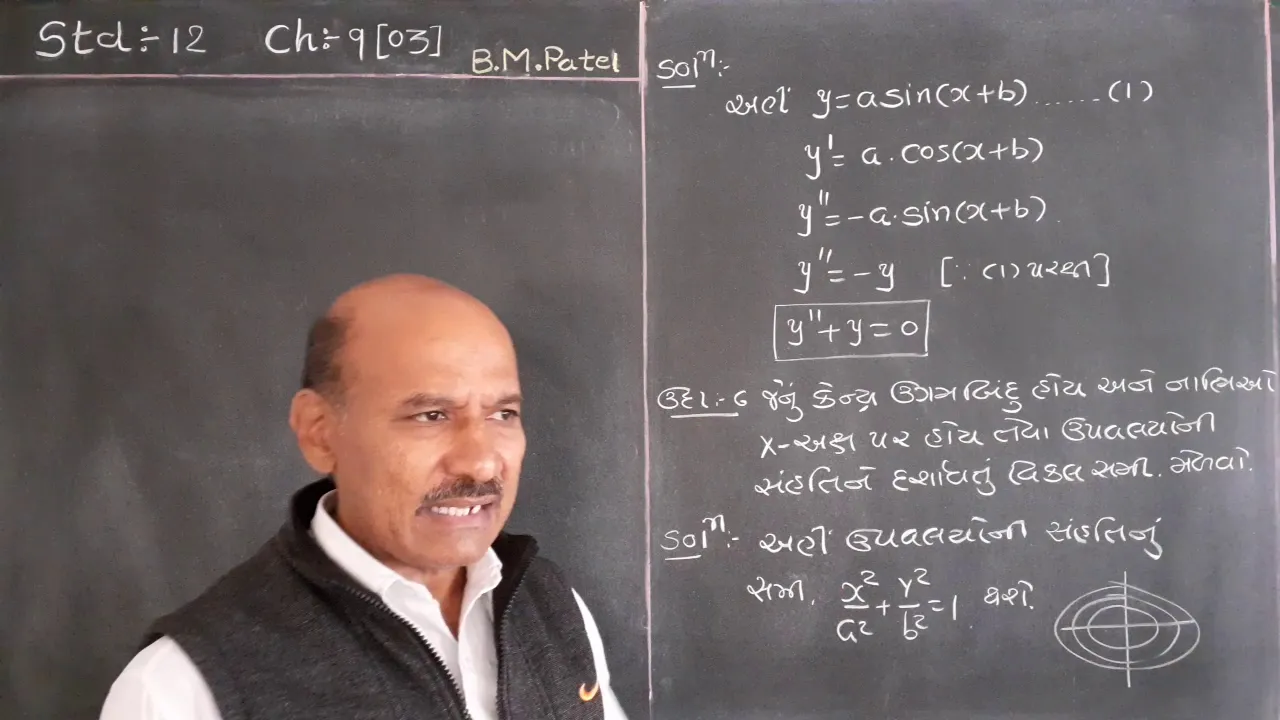 Std:-12 Ch:-9[03] B.M.Patel
Solⁿ:-
અહીં y=asin(x+b) ...... (1)
y'= a.cos(x+b)
y''=-a.sin(x+b)
y''=-y [∵ (1) પરથી]
y''+y=0
ઉદા.:-૬ જેનું કેન્દ્ર ઉગમબિંદુ હોય અને નાભિઓ
X-અક્ષ પર હોય તેવા ઉપવલયોની
સંહતિને દર્શાવતું વિકલ સમી. મેળવો.
Solⁿ:- અહીં ઉપવલયોની સંહતિનું
સમી. x²/a²+y²/b²=1 થશે.